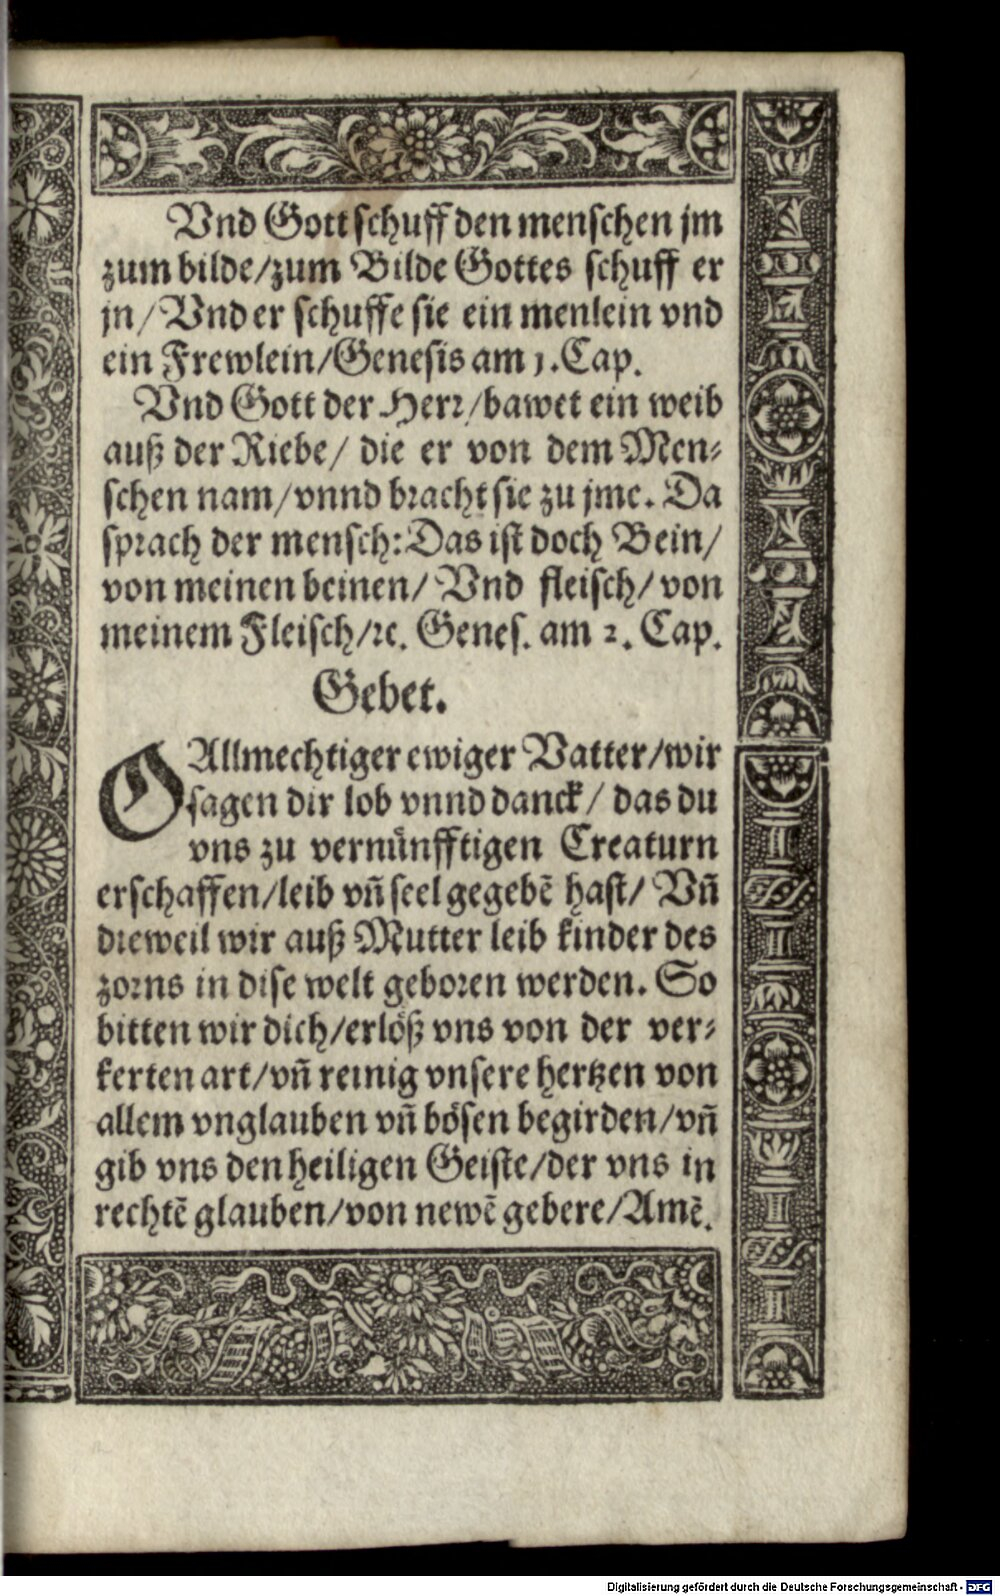 Vnd Gott schuff den menschen jm
zum bilde/zum Bilde Gottes schuff er
jn/Vnd er schuffe sie ein menlein vnd
ein Frewlein/Genesis am 1.Cap.
Vnd Gott der Herr/bawet ein weib
auß der Riebe/ die er von dem Men⸗
schen nam/vnnd bracht sie zu jme. Da
sprach der mensch: Das ist doch Bein/
von meinen beinen/ Vnd fleisch/ von
meinem Fleisch/ꝛc. Genes. am 2. Cap.
Gebet.
O Allmechtiger ewiger Vatter/wir
sagen dir lob vnnd danck/ das du
vns zu vernünfftigen Creaturn
erschaffen/leib vñ seel gegebẽ hast/ Vñ
dieweil wir auß Mutter leib kinder des
zorns in dise welt geboren werden. So
bitten wir dich/erlöß vns von der ver⸗
kerten art/vñ reinig vnsere hertzen von
allem vnglauben vñ bösen begirden/vñ
gib vns den heiligen Geiste/der vns in
rechtẽ glauben/von newẽ gebere/Amẽ.
Digitalisierung gefördert durch die Deutsche Forschungsgemeinschaft - DFG